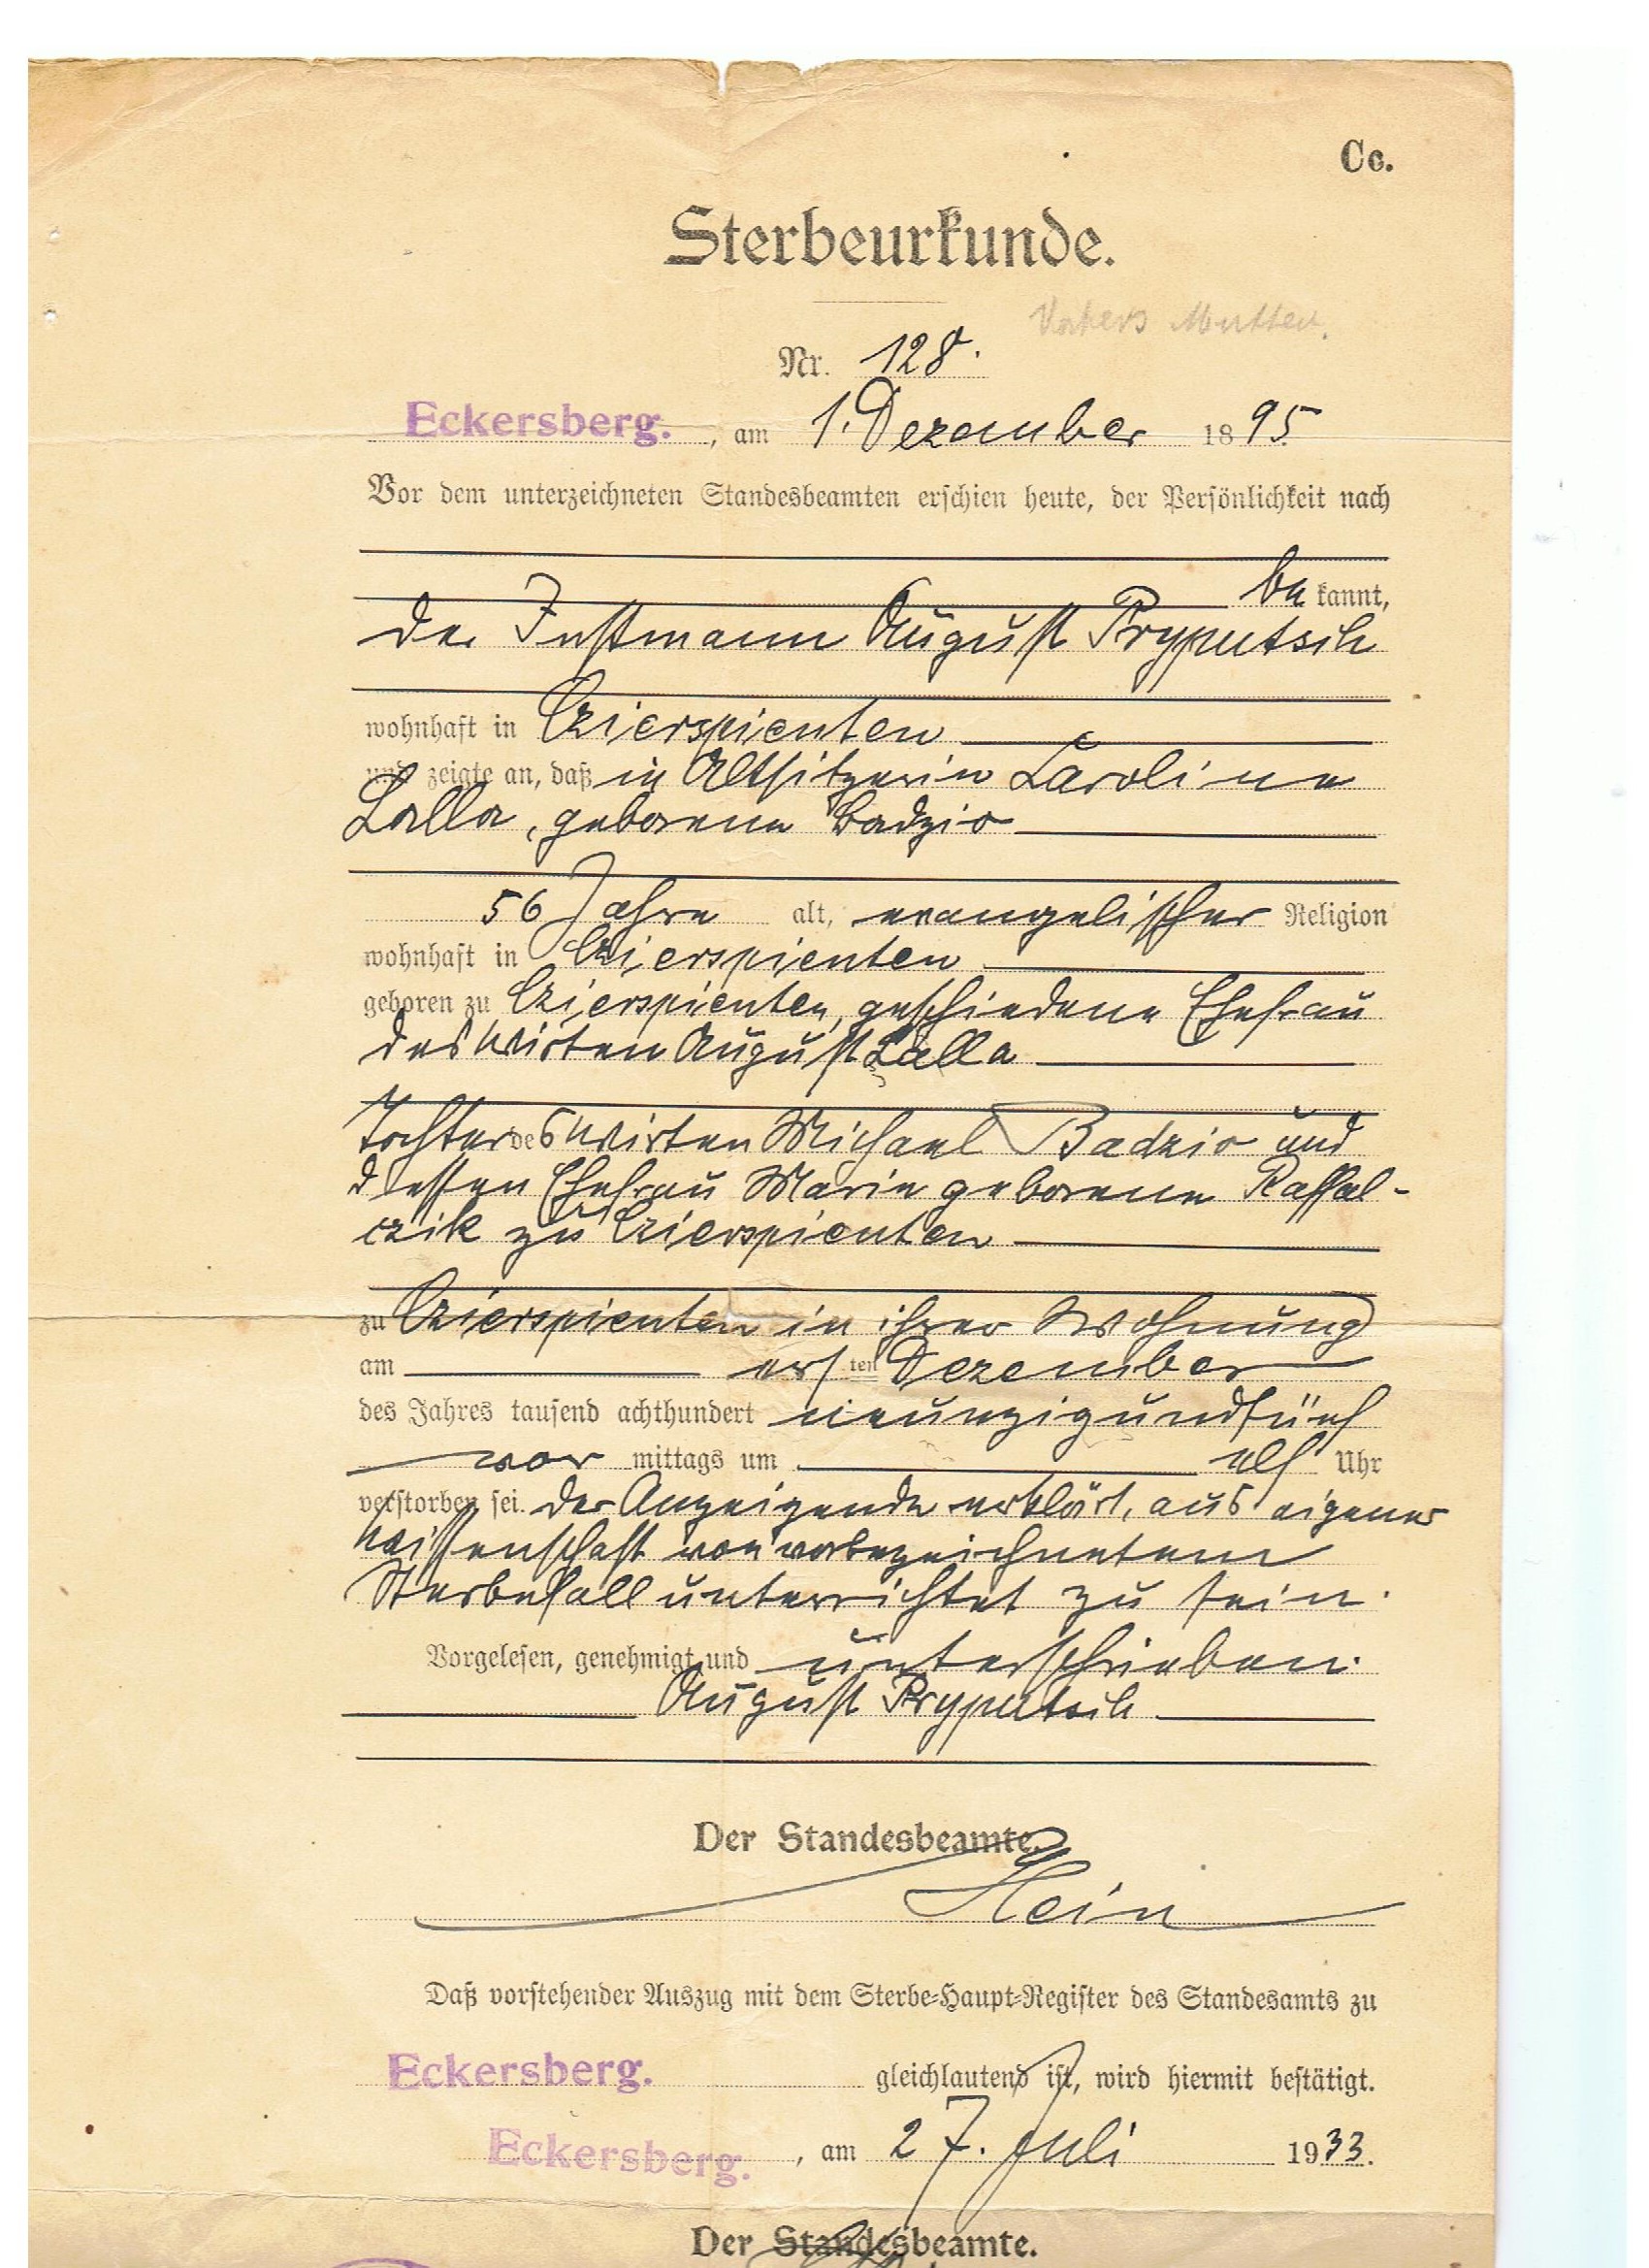 Cc.
Sterbeurkunde.
Vaters Mutter.
Nr. 128.
Eckersberg. , am 1. Dezember 1895
Vor dem unterzeichneten Standesbeamten erschien heute, der Persönlichkeit nach
be kannt,
der Instmann August Pryputsch
wohnhaft in Czierspienten
und zeigte an, daß die Altsitzerin Karoline
Lalla, geborene Badzio
56 Jahre alt, evangelischer Religion
wohnhaft in Czierspienten
geboren zu Czierspienten, geschiedene Ehefrau
des Wirten August Lalla
Tochter des Wirten Michael Badzio und
dessen Ehefrau Marie geborene Raffal-
czik zu Czierspienten
zu Czierspienten in ihrer Wohnung
am ersten Dezember
des Jahres tausend achthundert neunzigundfünf
vor mittags um elf Uhr
verstorben sei. Der Anzeigende erklärt, aus eigener
Wissenschaft von vorbezeichnetem
Sterbefall unterrichtet zu sein.
Vorgelesen, genehmigt und unterschrieben.
August Pryputsch
Der Standesbeamte.
Hein
Daß vorstehender Auszug mit dem Sterbe-Haupt-Register des Standesamts zu
Eckersberg. gleichlautend ist, wird hiermit bestätigt.
Eckersberg. , am 27. Juli 1933.
Der Standesbeamte.